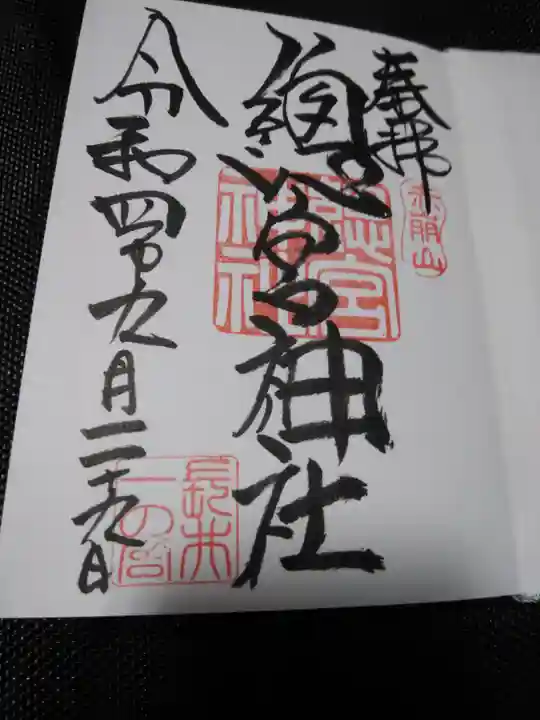 奉拝
赤崩山
總宮神社
總宮神社
長井
一の宮
令和四年九月二十九日